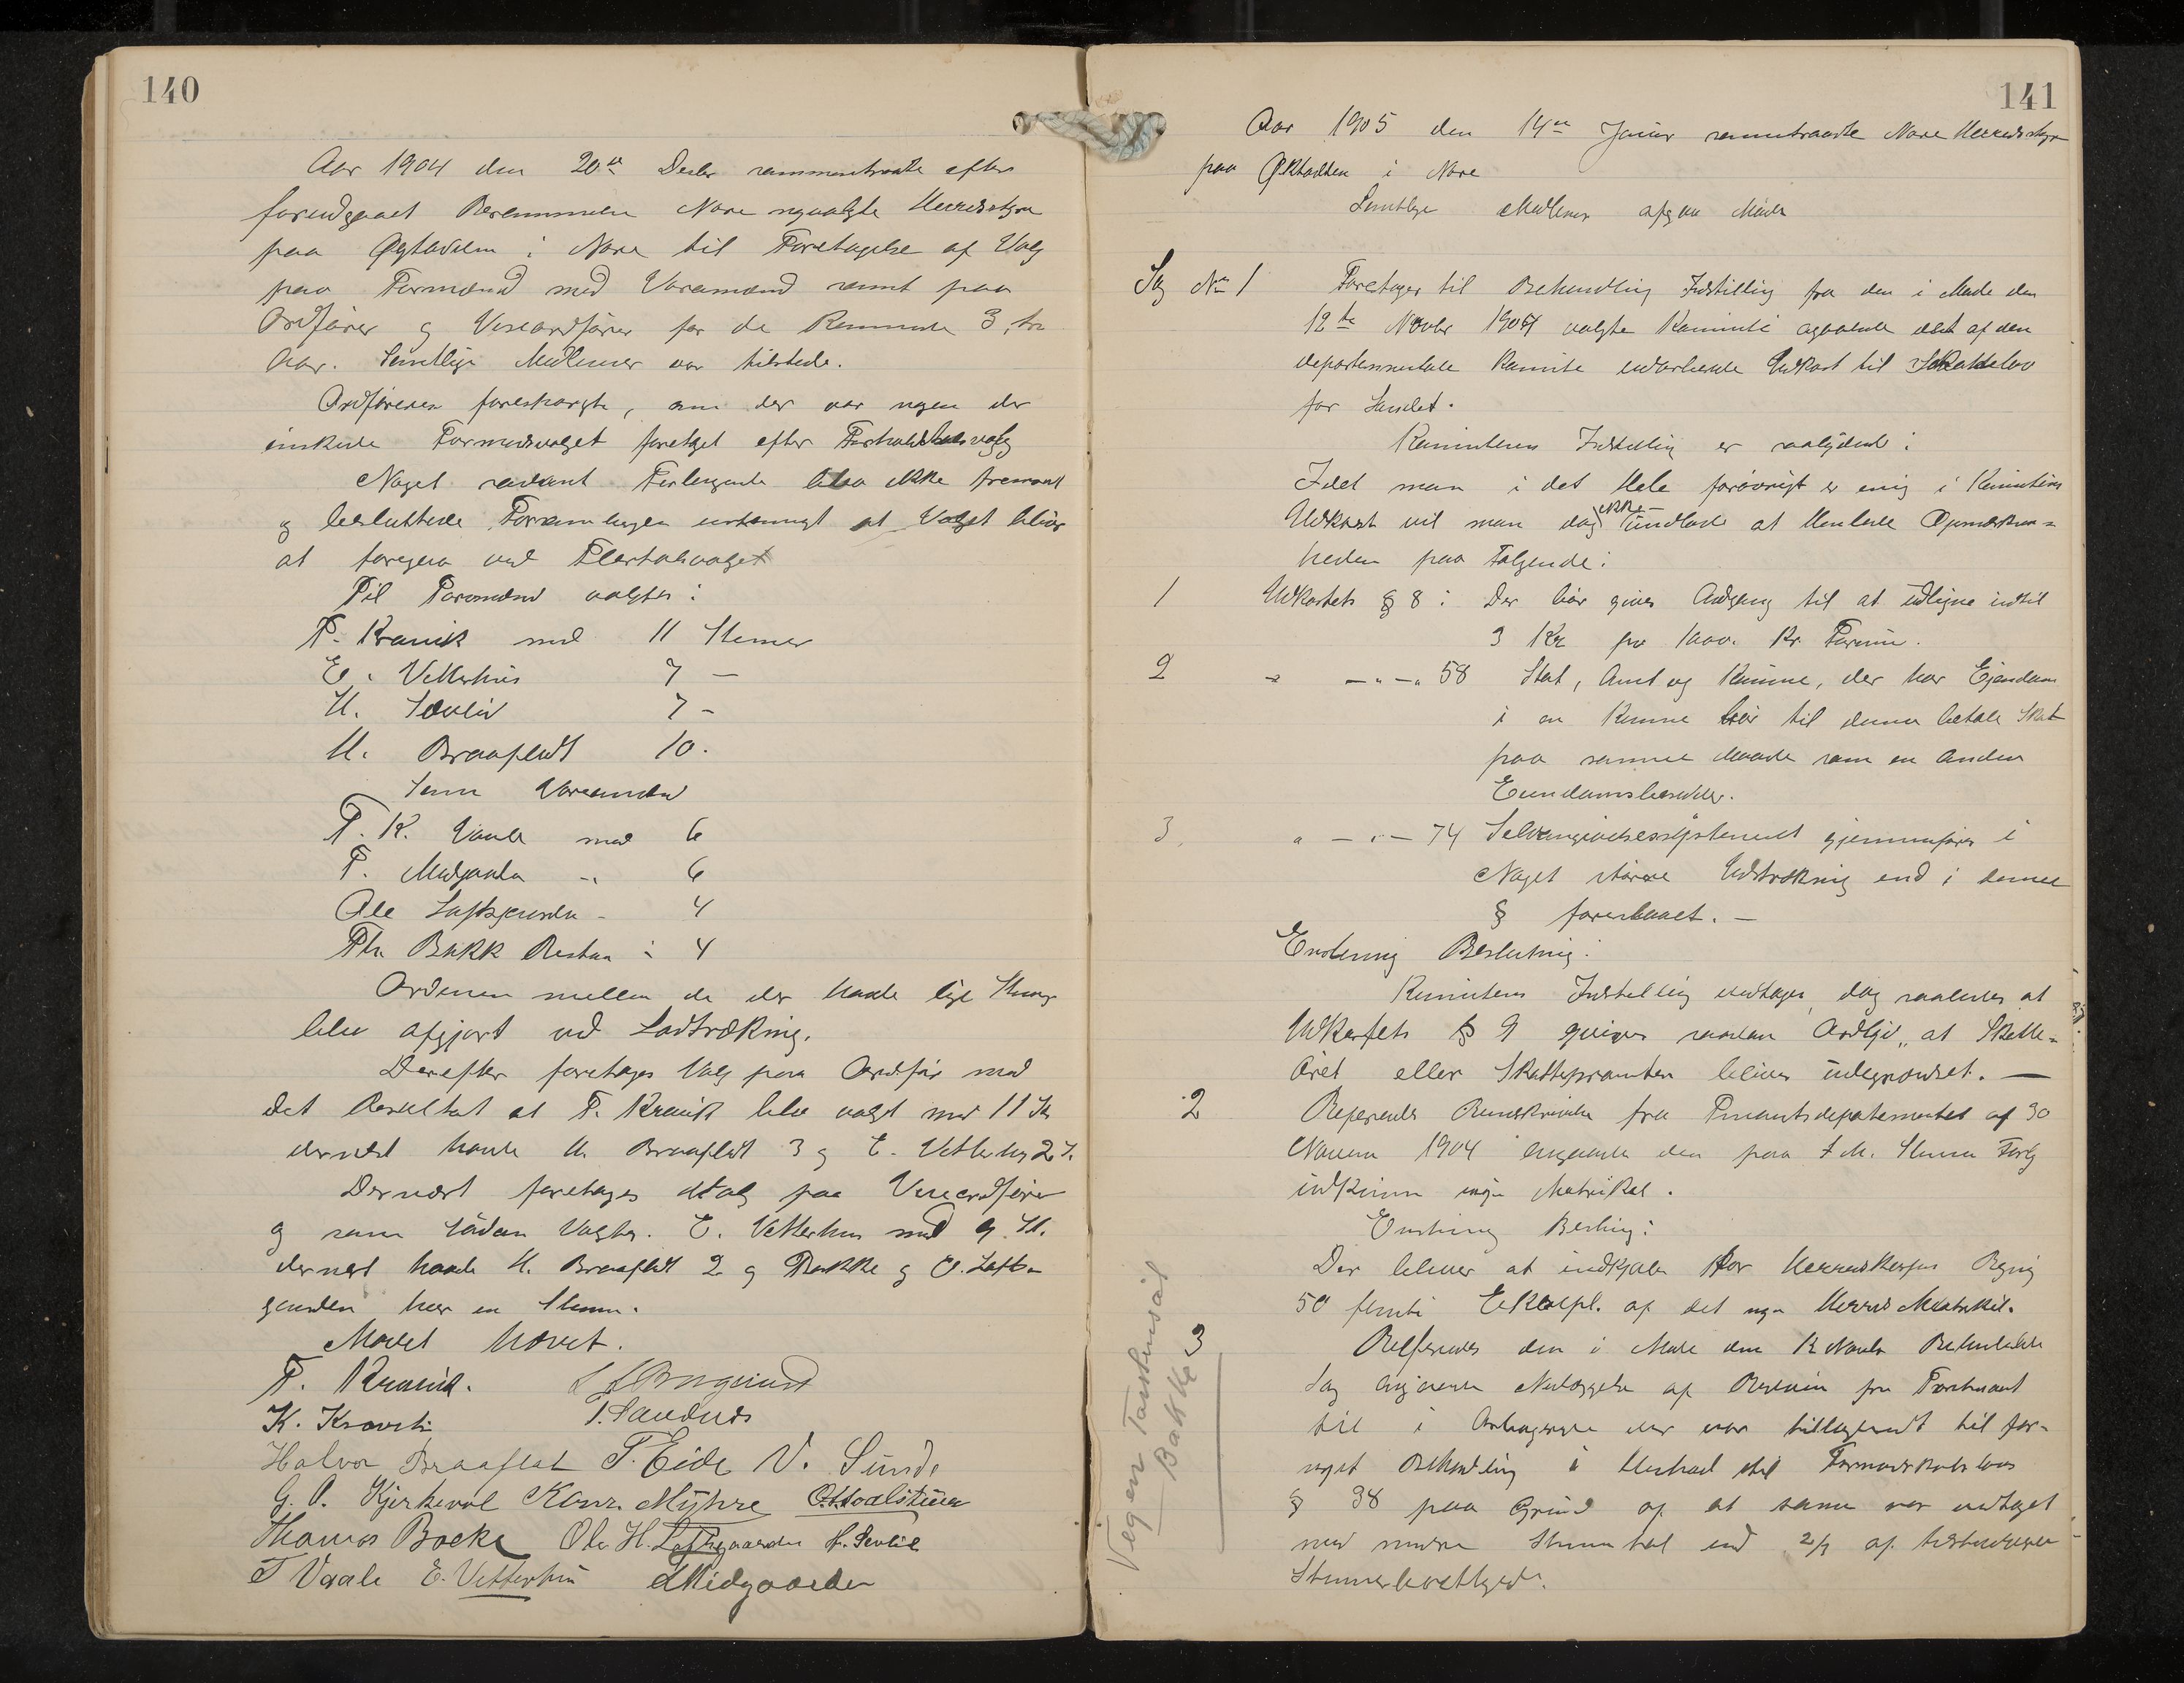 140
Aar 1904 den 20de Decbr sammentraate efter
forudgaaet Berammelse Nore nyvalgte Herredsstyre
paa Øgtadsten i Nore til Foretagelse af Valg
paa Formænd med Varamænd samt paa
Ordfører og Viseordfører for de kommende 3, tre
Aar. Samtlige Medlemer var tilstede.
Ordføreren forespurgte, om der var nogen der
ønskede Formandsvalget foretaget efter Forholdstalsvalg
Noget saadant Forlangende blev ikke fremsat
og besluttede Forsamlingen enstemmigt at Valget bliver
at foregaa ved Flertalsvalget
Til Formænd valgtes:
T. Kravik med 11 Stemer
E. Vetterhus 7 —
H. Sevlid 7 -
H. Braafladt 10.
Som Varamænd
T. K. Vaale med 6
T. Midgarden -„ 6
Ole Loftsgaarden - 4
Th. Bakke - 4
Ordenen mellem de der havde lige Stemer
blev afgjort ved Lodtrækning.
Derefter foretoges Valg paa Ordfør med
det Resultat at T. Kravik blev valgt med 11 St
dernæst havde H. Braaflat 3 og E. Vetterhus 2 S.
Dernæst foretoges Valg paa Viseordfører
og som sådan Valgtes. E. Vetterhus med 9 St.
dernest havde H. Braaflat 2 og Bakke og O. Lofts-
gaarden hver en Stemme.
Mødet hævet.
T. Kravik.
K. Kravik T. Sandnes
Halvor Braaflat T. Eide N. Sunde
G. O. Kjerkevol Konr. Myhre
Thomas Bakke Ole H. Loftsgaarden H. Sevlid
T Vaale E. Vetterhus Midgaarden
141
Aar 1905 den 14de Januar sammentraadte Nore Herredsstyre
paa Øktadsten i Nore
Samtlige Medlemer afgav Møde
Sag No 1 Foretoges til Behandling Indstilling fra den i Møde den
12te Novbr 1904 valgte Kommite angaaende det af den
departementale Komite udarbeidede Udkast til Skattelov
for Landet.
Kommiteens Indstilling er saalydende:
Idet man i det Hele forøvrigt er enig i Kommiteens
Udkast vil man dog ikke undlade at Henlede Opmærksom-
heden paa Følgende:
1 Udkastets § 8: Der bør gives Adgang til at udligne indtil
3 Kr pr 1000. Kr. Formue.
2 „ —„—„ 58 Stat, Amt og Komune, der har Eiendom
i en Komune bør til denne betale Skat
paa samme Maade som en Anden
Eiendomsbesidder.
3. „ —„— 74 Selvangivelsessystemet gjennemføres i
Noget større Udstrækning end i denne
§ foreslaaet. —
Enstemig Beslutning:
Komiteens Indstilling vedtages, dog saaledes at
Udkastets § 9 gives saadan Ordlyd, at Skatte-
året eller Skatteprocenten bliver ubegrændset. —
2 Refereredes Rundskrivelse fra Finantsdepartementet af 30
Novem 1904 angaaende den paa
indkomne nye Matrikel.
Enstemig Beslutning:
Der bliver at indkjøbe for Herredskassens Regning
50 femti Exempl. af det nye Herreds Matrikel.
3 Refereredes den i Møde den 12 Novbr Behandlede
Sag angaaende Nedlæggelse af
til i der var tillagt til for-
nyet Behandling i Henhold til Formandskabsloven
§ 38 paa Grund af at samme var vedtaget
med mindre Stemmetal end 2/3 af
Stemmeberettigede.
Vegen
Bakke